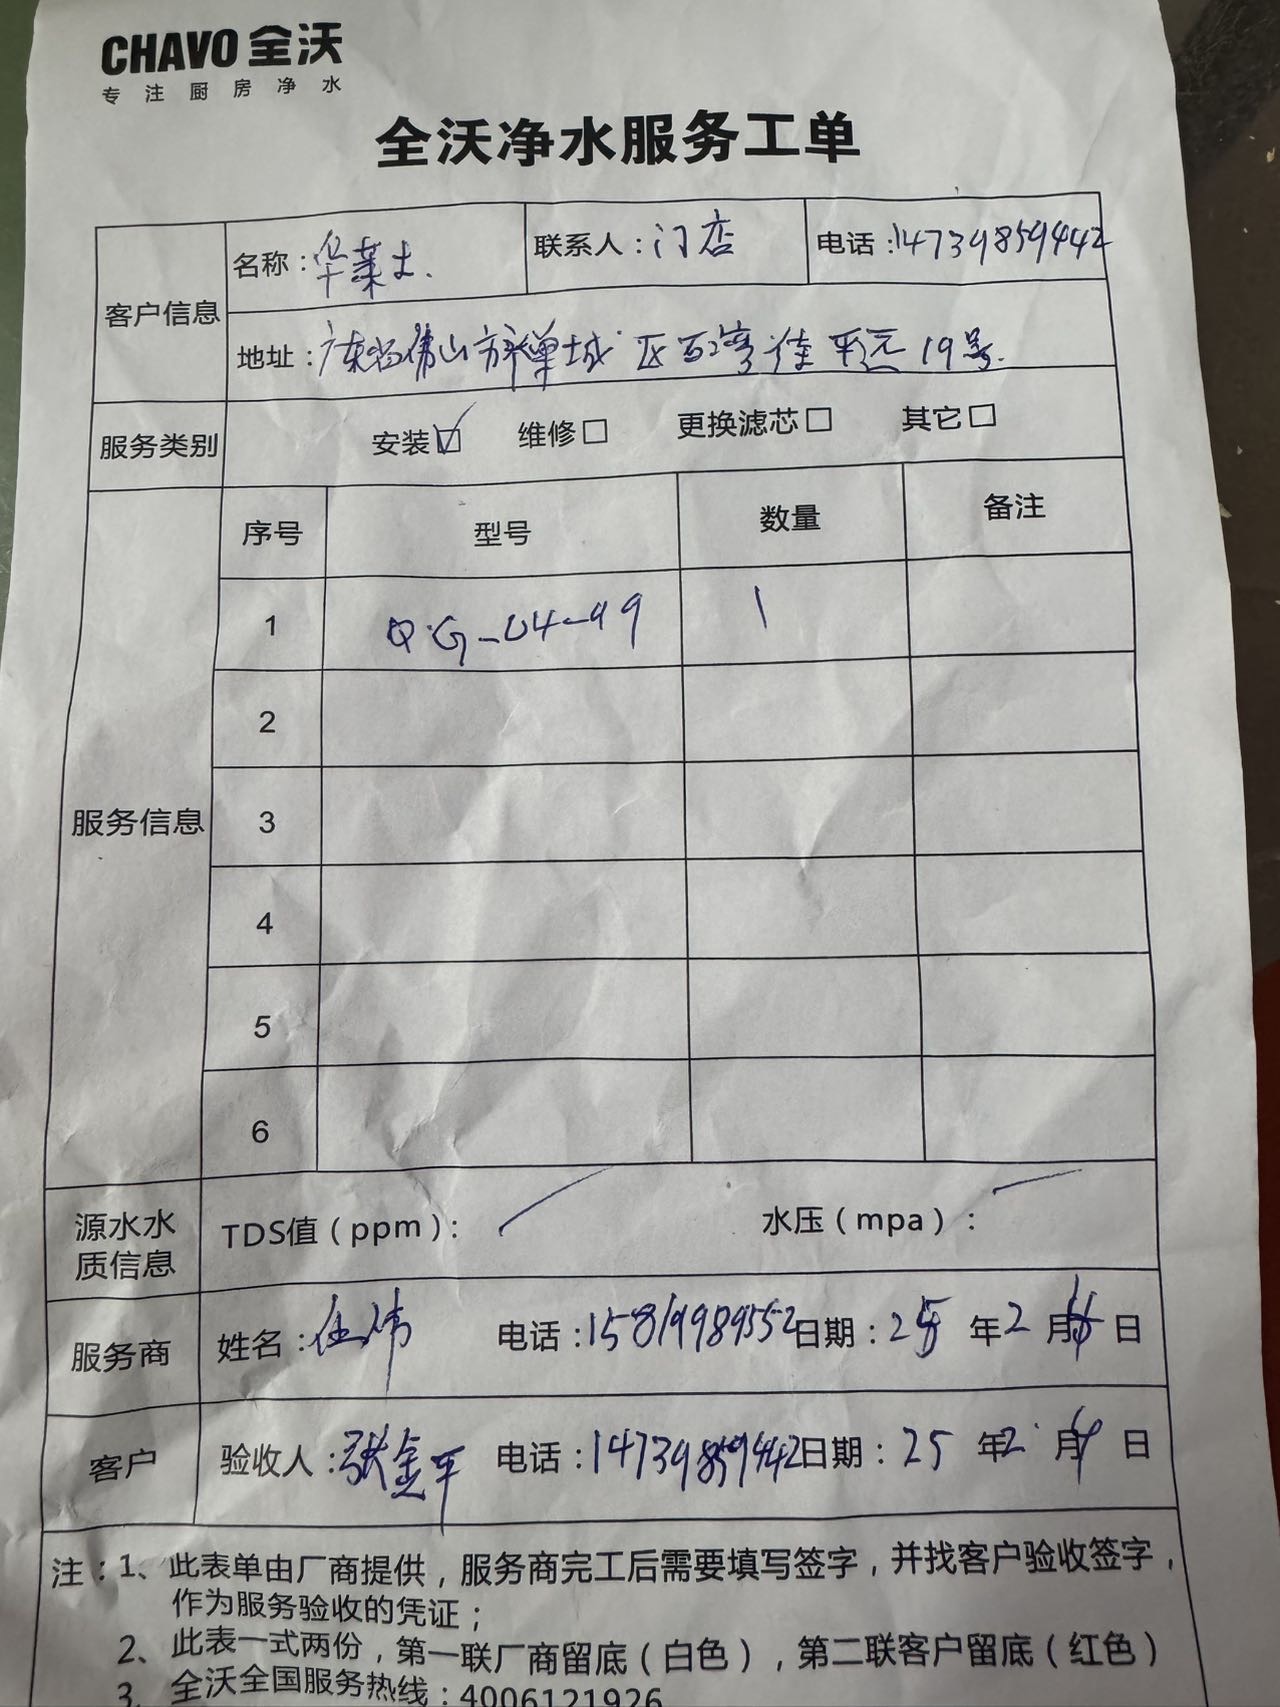 CHAVO 全沃
专注厨房净水
全沃净水服务工单
客户信息
名称：华莱士.
联系人：门店
电话：14739859442
地址：广东省佛山市禅城区 19号.
服务类别
安装☑ 维修□ 更换滤芯□ 其它□
服务信息
序号 型号 数量 备注
1 QG-04-49 1
2
3
4
5
6
源水水质信息
TDS值（ppm）： 水压（mpa）：
服务商 姓名：伍伟 电话：15819989552 日期：25年2月 日
客户 验收人：张金平 电话：14739859442 日期：25年2月 日
注：1、此表单由厂商提供，服务商完工后需要填写签字，并找客户验收签字，
作为服务验收的凭证；
2、此表一式两份，第一联厂商留底（白色），第二联客户留底（红色）
3、全沃全国服务热线：4006121926